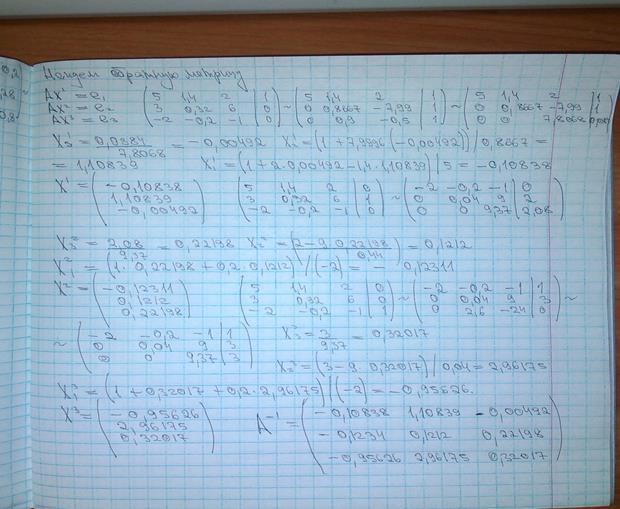 0,2
Найдем обратную матрицу
AX¹ = e₁
AX² = e₂
AX³ = e₃
(5 1,4 2 | 1
3 0,32 6 | 0
-2 -0,2 -1 | 0) ~ (5 1,4 2 | 1
0 0,8667 -7,99 | 1
0 0,9 -0,5 | 1) ~ (5 1,4 2 | 1
0 0,8667 -7,99 | 1
0 0 7,8068
X₃¹ = 0,0384 / 7,8068 = -0,00492 X₂¹ = (1 + 7,9996 (-0,00492)) / 0,8667 =
= 1,10839 X₁¹ = (1 + 2·0,00492 - 1,4·1,10839) / 5 = -0,10838
X¹ = (-0,10838
1,10839
-0,00492)
(5 1,4 2 | 0
3 0,32 6 | 1
-2 -0,2 -1 | 0) ~ (-2 -0,2 -1 | 0
0 0,04 9 | 2
0 0 9,37 | 2,08)
X₃² = 2,08 / 9,37 = 0,22198 X₂² = (2 - 9·0,22198) / 0,44 = 0,1212
X₁² = (1·0,22198 + 0,2·0,1212) / (-2) = -0,12311
X² = (-0,12311
0,1212
0,22198)
(5 1,4 2 | 0
3 0,32 6 | 0
-2 -0,2 -1 | 1) ~ (-2 -0,2 -1 | 1
0 0,04 9 | 3
0 2,6 -24 | 0) ~
~ (-2 -0,2 -1 | 1
0 0,04 9 | 3
0 0 9,37 | 3)
X₃³ = 3 / 9,37 = 0,32017
X₂³ = (3 - 9·0,32017) / 0,04 = 2,96175
X₁³ = (1 + 0,32017 + 0,2·2,96175) / (-2) = -0,95626.
X³ = (-0,95626
2,96175
0,32017)
A⁻¹ = (-0,10838 1,10839 -0,00492
-0,1234 0,1212 0,22198
-0,95626 2,96175 0,32017)